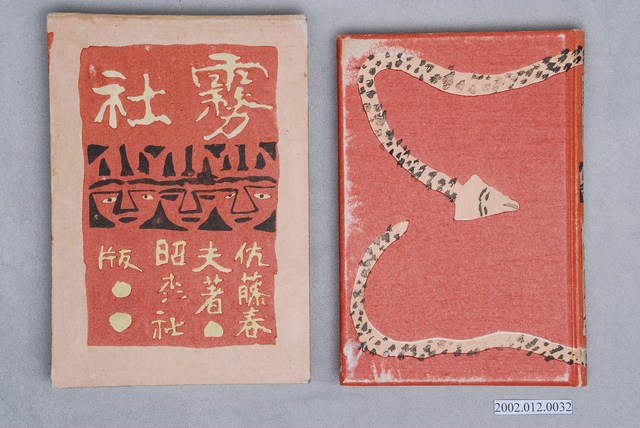 霧社
佐藤春
夫著●
昭森社
版●●
2002.012.0032